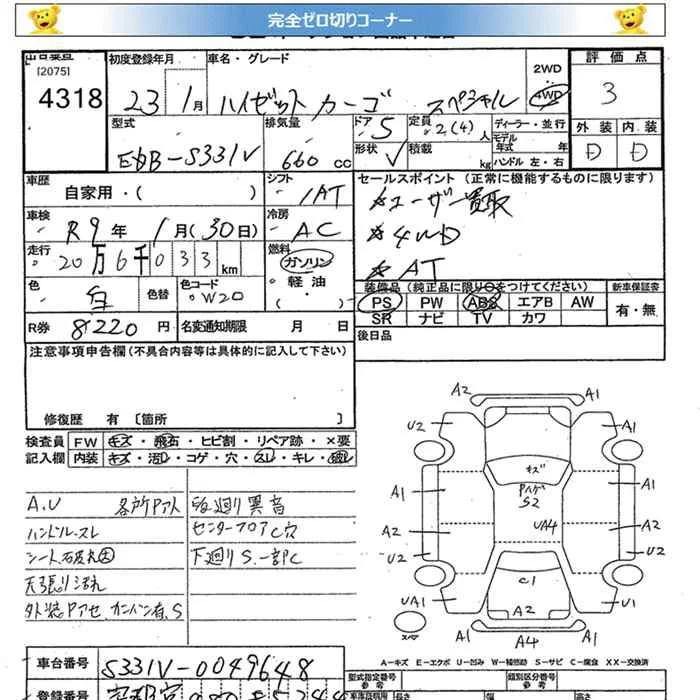 完全ゼロ切りコーナー
出品票
[2075]
4318
初度登録年月
23 1月
車名・グレード
ハイゼット カーゴ スペシャル
2WD
4WD
評価点
3
外装 内装
D D
型式
EBD-S331V
排気量
660 cc
ドア 5
形状 V
定員 2(4)人
積載 kg
ディーラー・並行
モデル年式 年
ハンドル 左・右
車歴
自家用・( )
シフト
IAT
車検
R9年 1月(30日)
冷房
AC
走行
20万6千033km
燃料
ガソリン
軽油
( )
色
白
色替
色コード
W20
R券 8220円
名変通知期限 月 日
セールスポイント (正常に機能するものに限ります)
*ユーザー買取
*4WD
*AT
装備品 (純正品に限り○をつけてください)
新車保証書
PS PW ABS エアB AW
有・無
SR ナビ TV カワ
後日品
注意事項申告欄 (不具合内容等は具体的に記入して下さい)
修復歴 有 〔箇所 〕
検査員 FW キズ・飛石・ヒビ割・リペア跡・×要
記入欄 内装 キズ・汚レ・コゲ・穴・スレ・キレ・破レ
A.U 各所Pアト
ハンドルスレ
シート破れ大
天張り汚れ
外装Pアセ、カンバン有、S
足廻り異音
センターフロアC穴
下廻りS、一部C
A2 A1
U2 A1
キズ
Pハゲ
S2
A1 A1
A2 UA4 A2
U2 U2
C1
UA1 A2 U1
スペア
A4
A-キズ E-エクボ U-凹み W-補修跡 S-サビ C-腐食 XX-交換済
車台番号 S331V-0049648
登録番号
型式指定番号
類別区分番号
参考
車体証明 長さ 幅 高さ